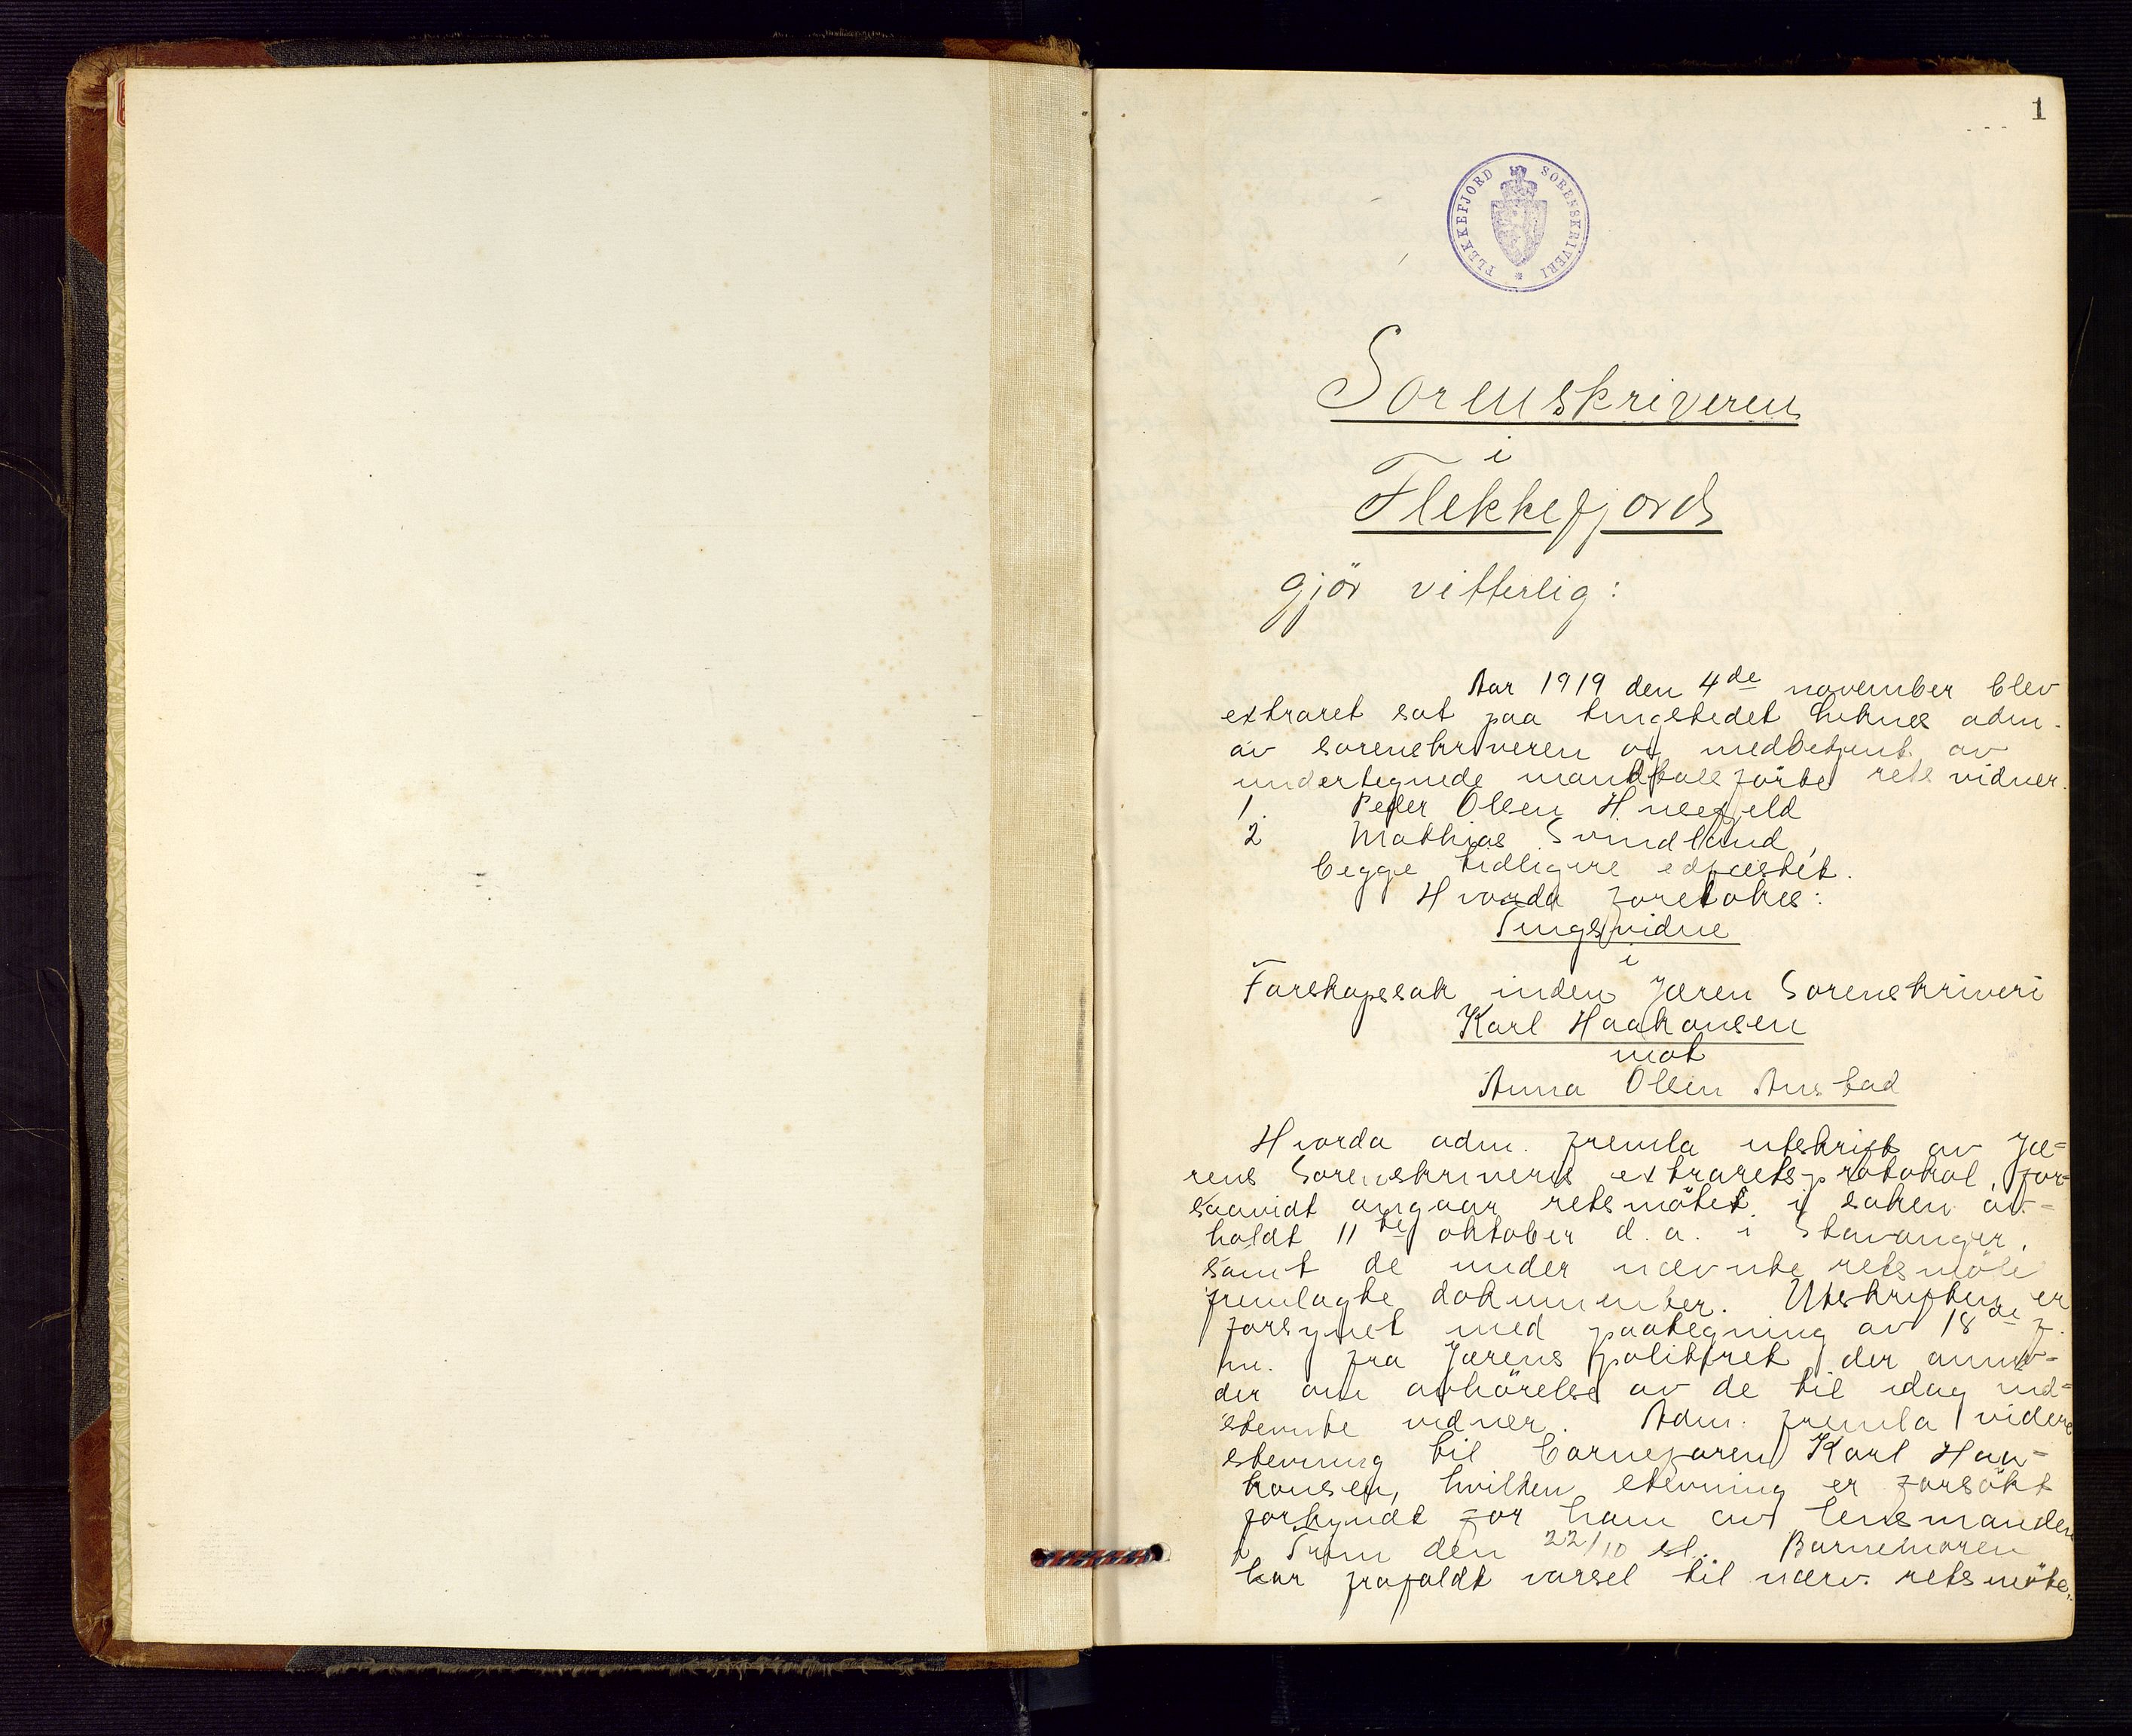 1
FLEKKEFJORD SORENSKRIVERI
Sorenskriveren
i
Flekkefjord
gjör vitterlig:
Aar 1919 den 4de november blev
extraret sat paa tingstedet adm.
av sorenskriveren og medbetjent av
undertegnede mandtalsförte retsvidner.
1. Peder Olsen
2 Mathias Svindland,
begge tidligere edfæstet.
Hvorda foretokes:
Tingsvidne
i
Farskapssak inden Jæren Sorenskriveri
Karl Haakonsen
mot
Anna Olsen Austad
Hvorda adm. fremla utskrift av Jæ-
rens Sorenskriveris extraretsprotokol, for-
saavidt angaar retsmötet i saken av-
holdt 11te oktober d.a. i Stavanger,
samt de under nævnte retsmöte
fremlagte dokumenter. Utskriften er
forsynet med paategning av 18de f.
m. fra Jærens politifret der anmo-
der om avhörelse av de til idag ind-
stevnte vidner. Adm. fremla videre
stevning til barnefaren Karl Haa-
konsen, hvilken stevning er forsökt
forkyndt for ham av lensmanden
i den 22/10 sl. Barnemoren
har frafaldt varsel til nærv. retsmöte.